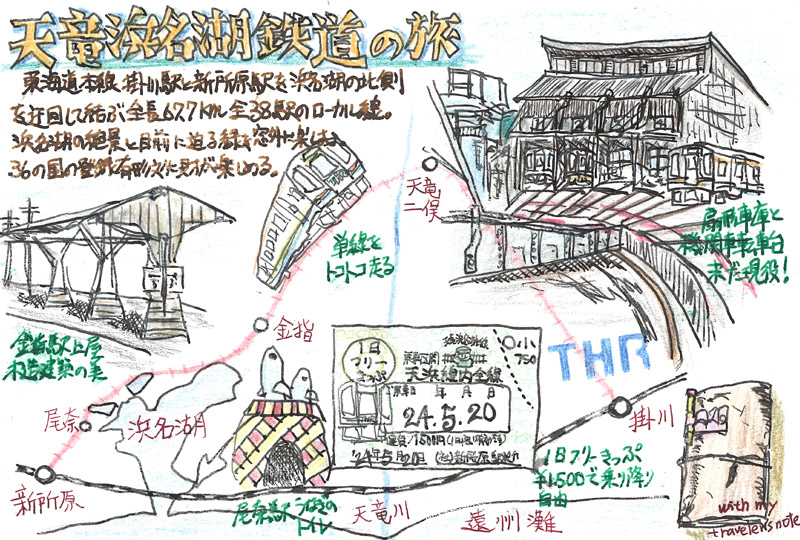 天竜浜名湖鉄道の旅
東海道本線掛川駅と新所原駅を浜名湖の北側
を迂回して結ぶ全長67.7km全38駅のローカル線。
浜名湖の絶景と目前に迫る緑を窓外に楽しみ
36の国の登録有形文化財が楽しめる。
天竜
二俣
扇形車庫と
機関車転車台
まだ現役!
単線を
トコトコ走る
金指
金指駅上屋
木造建築の美
1日
フリー
きっぷ
小
750
天浜線内全線
年 月 日
24.5.20
THR
尾奈
浜名湖
掛川
新所原
尾奈駅うなぎの
トイレ
天竜川
遠州灘
1日フリーきっぷ
¥1,500で乗り降り
自由
with my
traveler's note